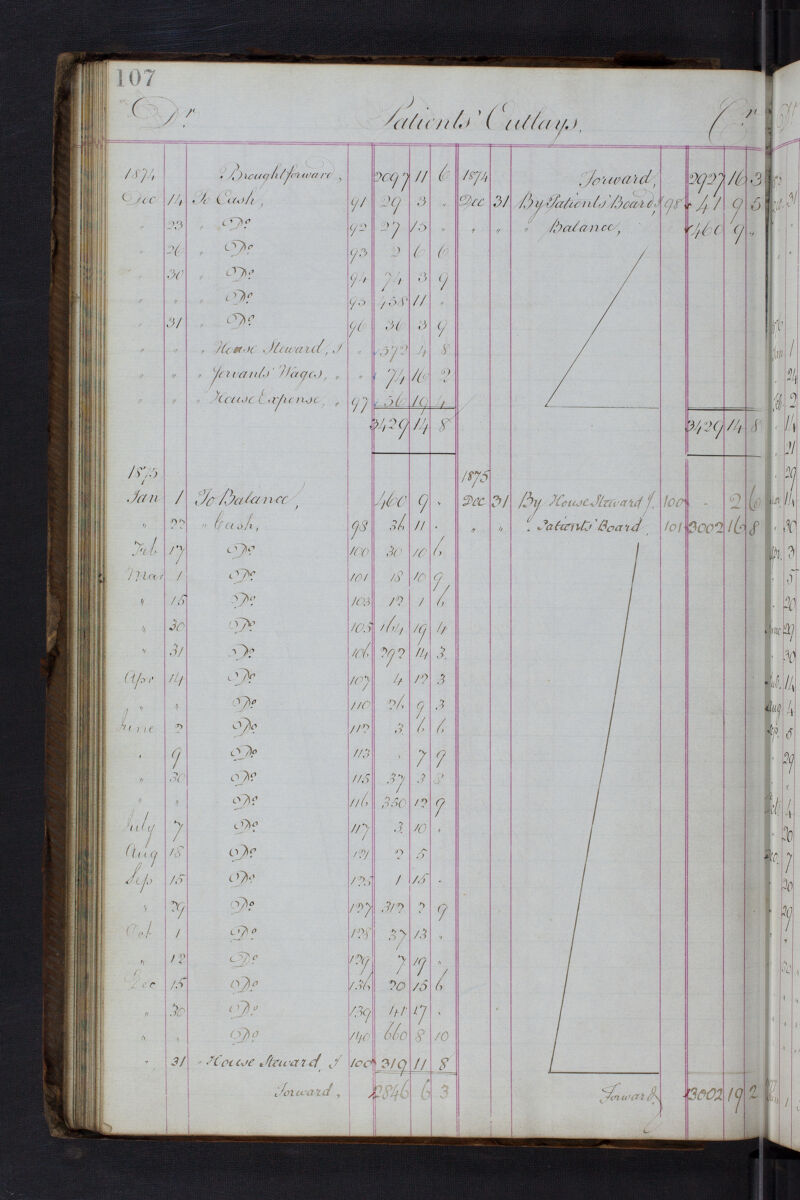 107
Dr Patients' Outlays. Cr
1874 Brought forward, 2097 11 6 1874 Forward, 2927 16 3
Dec 14 To Cash, 91 29 3 . Dec 31 By Patients' Board J 98 41 9 5
" 23 " Do 92 27 15 . " " " Balance, 460 9 .
" 26 " Do 93 2 6 6
" 30 " Do 94 74 3 9
" " " Do 95 458 11 .
" 31 " Do 96 36 3 9
" " " House Steward, J " 572 4 8
" " " Servants' Wages, " " 74 16 2
" " " House Expense, " 97 56 19 4
3429 14 8 3429 14 8
1875 1875
Jan 1 To Balance, 460 9 . Dec 31 By House Steward J. 100 . 2 6
" 22 " Cash, 98 36 11 . " " " Patients' Board, 101 3002 16 8
Feb 17 Do 100 30 10 6
Mar 1 Do 101 18 10 9
" 15 Do 103 12 1 6
" 30 Do 105 164 19 4
" 31 Do 106 292 14 3
Apr 14 Do 107 4 12 3
" " Do 110 26 9 3
June 2 Do 112 3 6 6
" 9 Do 113 . 7 9
" 30 Do 115 37 3 8
" " Do 116 350 12 9
July 7 Do 117 3 10 .
Aug 18 Do 121 2 5
Sep 15 Do 125 1 15 -
" 29 Do 127 312 2 9
Oct 1 Do 128 37 13 .
" 12 Do 129 7 19 .
Dec 15 Do 136 20 15 6
" 30 Do 139 41 17 .
" " Do 140 660 8 10
" 31 " House Steward, J 100 319 11 8
Forward, 2846 6 3 Forward, 3002 19 2